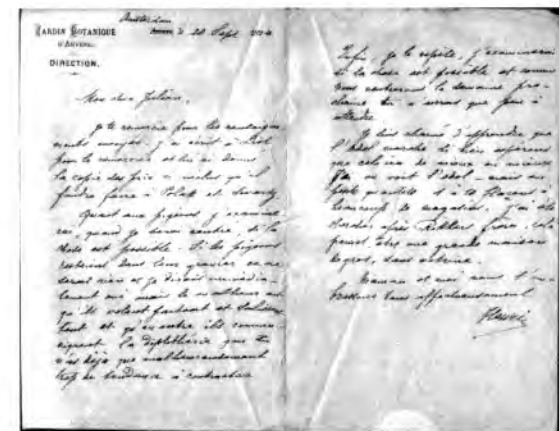 JARDIN BOTANIQUE
D'ANVERS.
DIRECTION.
Amsterdam
Anvers, le 20 Sept
Mon cher Julien,
Je te remercie pour les renseigne-
ments envoyés. J'ai écrit à
pour le remercier et lui ai donné
la copie des prix qu'il
faudra faire à Polak et
Quant aux pigeons, j'examine-
rai, quand je serai rentré, si la
chose est possible. Si les pigeons
restaient dans leur grenier ce ne
serait rien et je dirais immédia-
tement oui, mais le malheur est
qu'ils volent partout et salissent
tout et qu'en outre ils commu-
niquent la diphthérie que tu
n'as déjà que malheureusement
trop de tendance à contracter
Enfin, je le répète, j'examinerai
si la chose est possible et comme
nous rentrerons la semaine pro-
chaine tu n'auras que peu à
attendre.
Je suis charmé d'apprendre que
l'Idéal marche bien espérons
que cela ira de mieux en mieux
On voit l'Idéal mais en
petite quantité
beaucoup de magasins. J'ai été
frères,
grande maison
de gros, sans
Maman et moi nous t'em-
brassons bien affectueusement
Henri